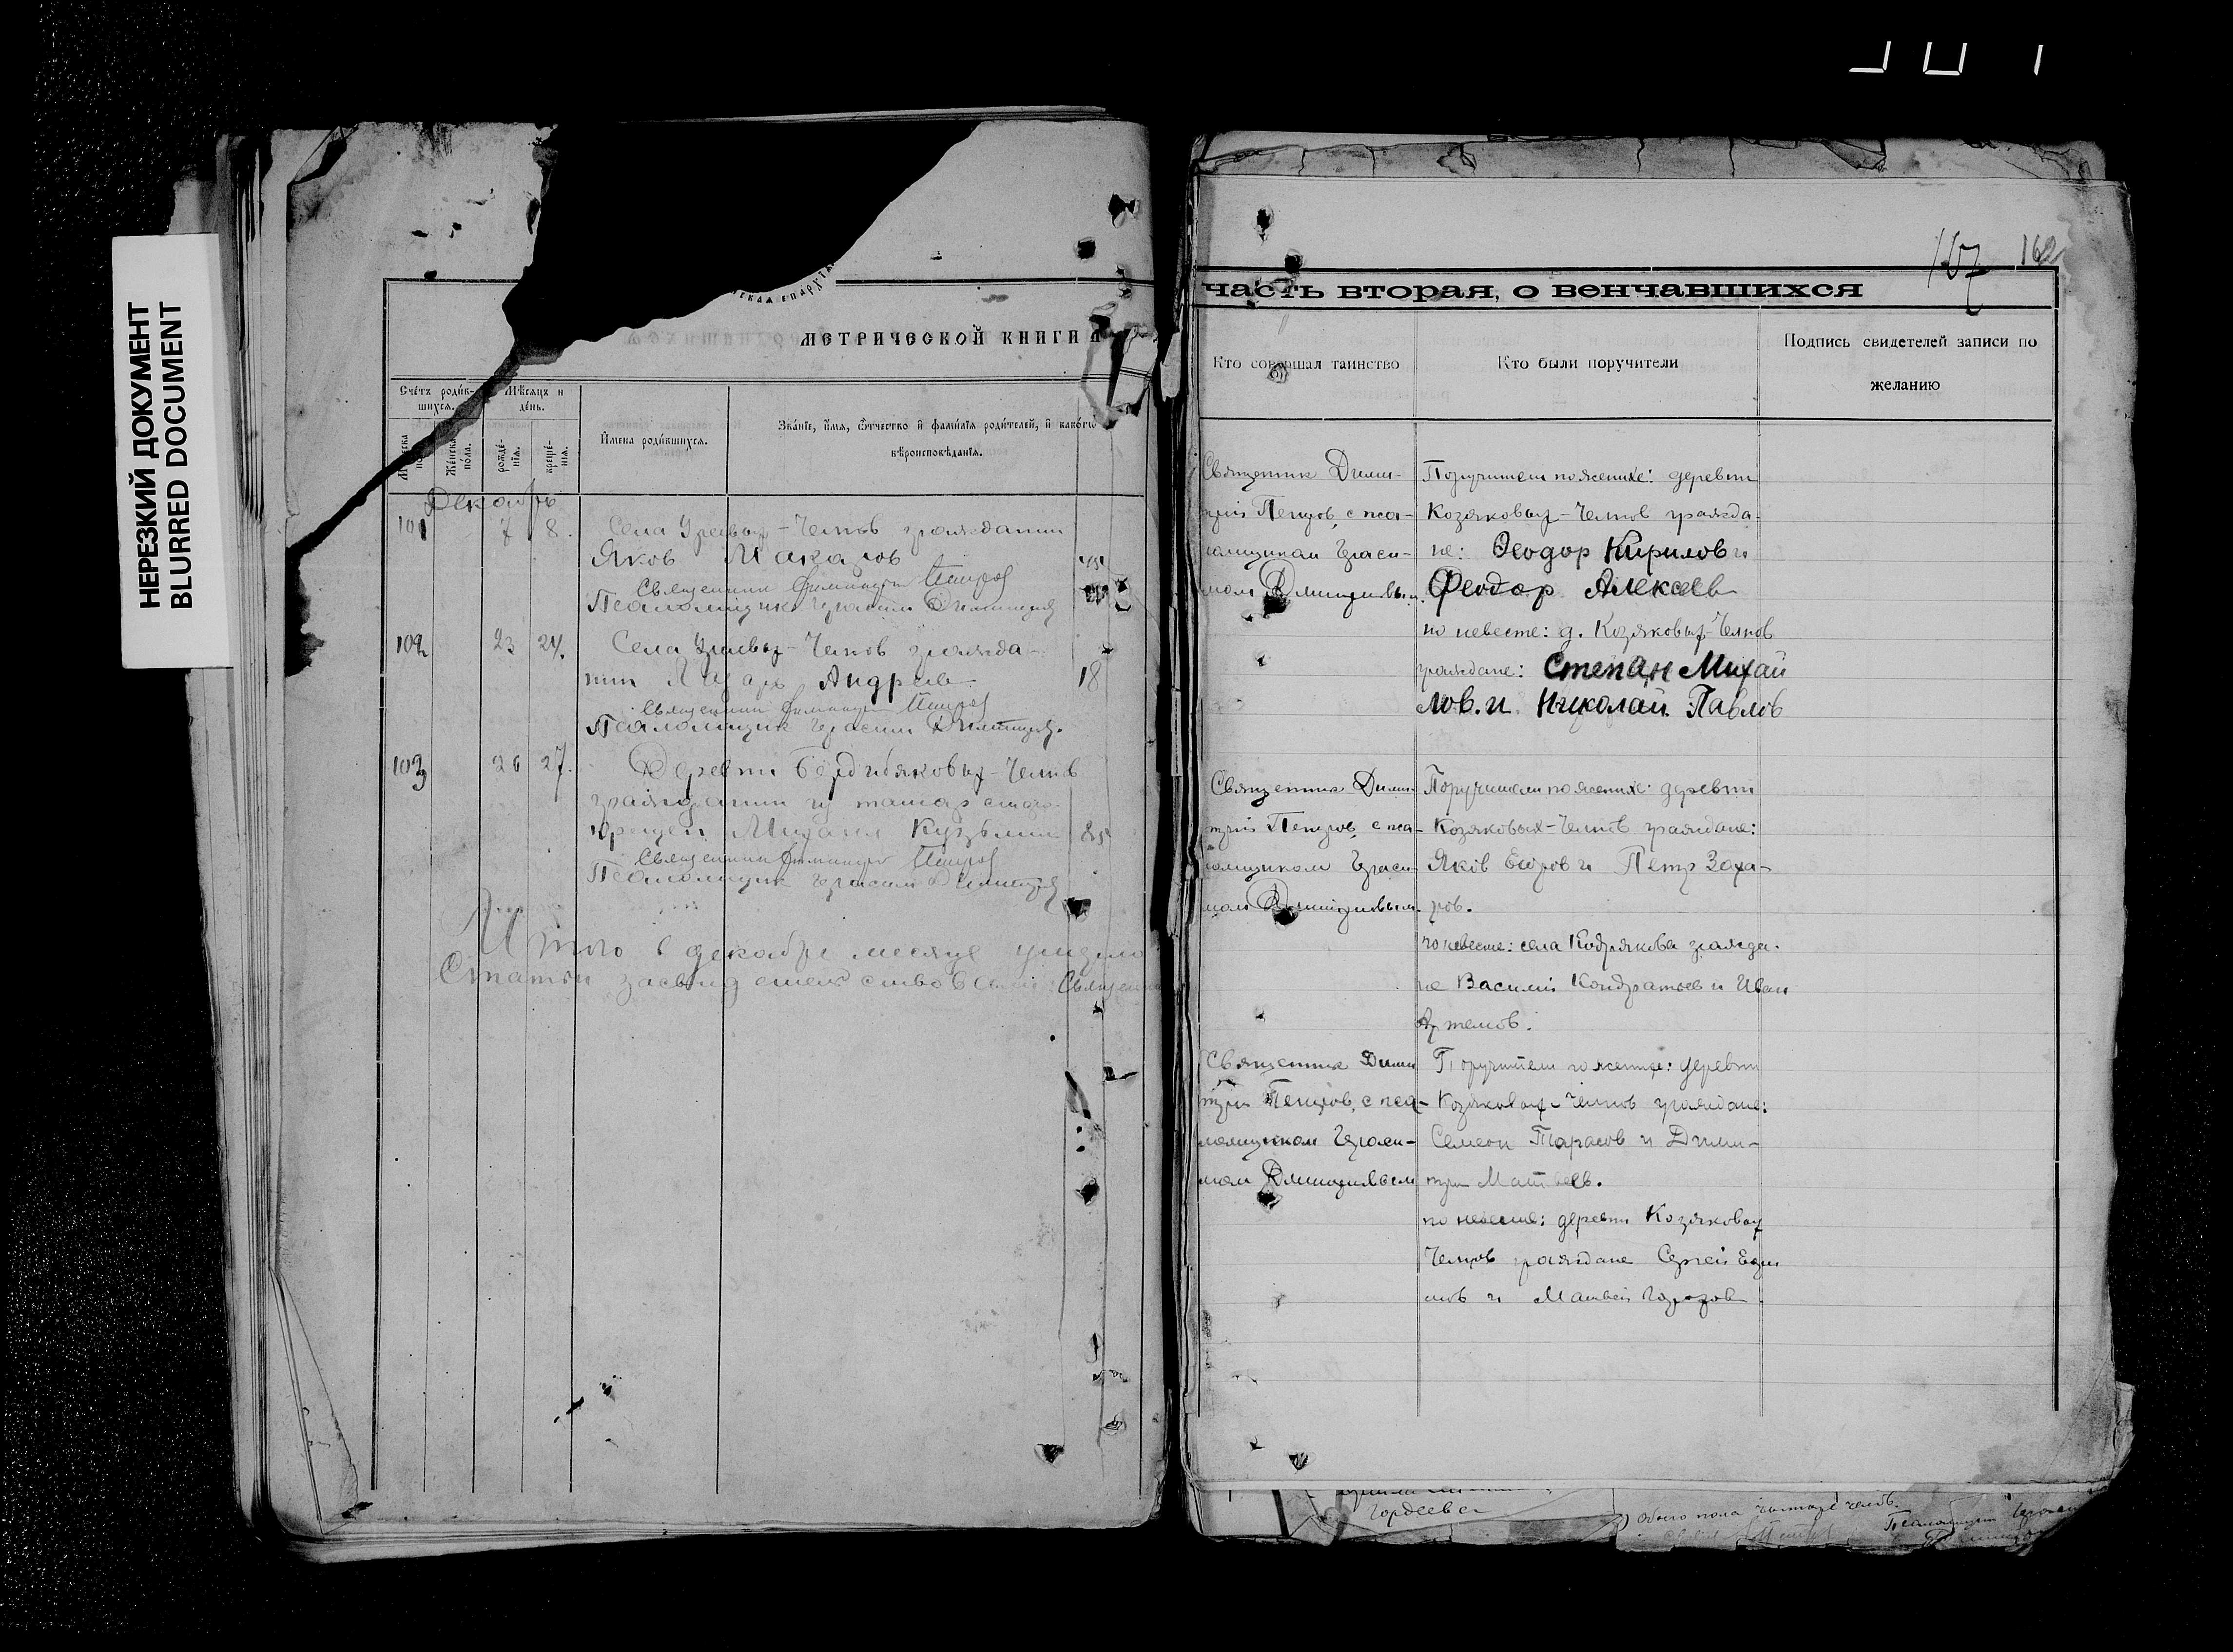 НЕРЕЗКИЙ ДОКУМЕНТ
BLURRED DOCUMENT
СКАѦ ЕПАРХІѦ
МЕТРИЧЕСКОЙ КНИГИ
Сче́тъ роди́вшихсѧ.
Мѣ́сѧцъ и де́нь.
Же́нска по́ла.
рожде́нїѧ.
креще́нїѧ.
И҆мена̀ роди́вшихсѧ.
Зва́нїе, и҆́мѧ, ѻ҆́тчество и҆ фамі́лїѧ роди́телей, и҆ како́гѡ
вѣроисповѣ́данїѧ.
Декабрь
101 7 8. Села -Челнов гражданин
Яков Макаров
Священник Димитрий Петров
Псаломщик Герасим Димитриев
102 23 24. Села -Челнов гражда-
нин Андреев 18
Священник Димитрий Петров
Псаломщик Герасим Димитриев.
103 26 27. Деревни Бердибяковых-Челнов
гражданин из татар старо-
крещен Михаил Кузьмин 85
Священник Димитрий Петров
Псаломщик Герасим Димитриев
Итого в декабре месяце умерло
Статьи Священник
157 162
часть вторая, о венчавшихся
Кто совершал таинство
Кто были поручители
Подпись свидетелей записи по
желанию
Священник Дими-
трий Петров, с пса-
ломщиком Гераси-
мом Димитриевым.
Поручители по женихе: деревни
Козяковых-Челнов гражда-
не: Феодор Кирилов и
Феодор Алексеев
по невесте: д. Козяковых-Челнов
граждане: Степан Михай
лов. и Николай Павлов
Священник Дими-
трий Петров, с пса-
ломщиком Гераси-
мом Димитриевым.
Поручители по женихе: деревни
Козяковых-Челнов граждане:
Яков Егоров и Петр Заха-
ров.
по невесте: села Кодрякова гражда-
не Василий Кондратьев и Иван
Артемов.
Священник Дими
трий Петров, с пса-
ломщиком Гераси-
мом Димитриевым
Поручители по женихе: деревни
Козяковых-Челнов граждане:
Семеон Тарасов и Дими-
трий Матвеев.
по невесте: деревни Козяковых
Челнов граждане Сергей
и Матвей
Гордеева
обоего пола человек.
Псаломщик